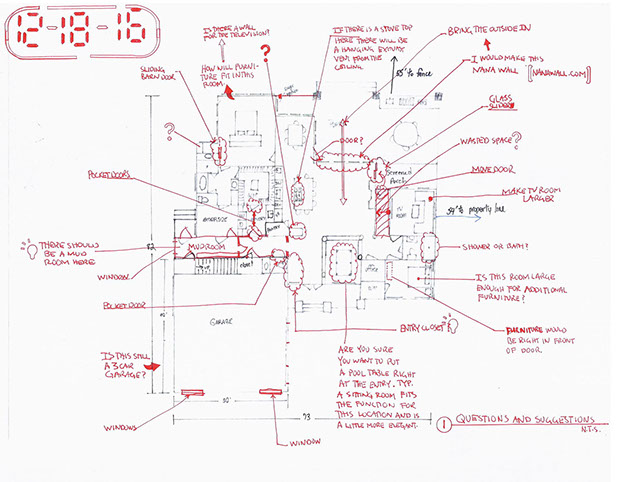 12-18-15
IS THERE A WALL
FOR THE TELEVISION?
HOW WILL FURNI-
TURE FIT IN THIS
ROOM
SLIDING
BARN DOOR
?
?
IF THERE IS A STOVE TOP
HERE THERE WILL BE
A HANGING EXHAUST
VENT FROM THE
CEILING.
BRING THE OUTSIDE IN
I WOULD MAKE THIS
NANA WALL [NANAWALL.COM]
55' to fence
GLASS
SLIDER
DOOR?
WASTED SPACE?
Screened
Porch
MOVE DOOR
MAKE TV ROOM
LARGER
TV
59' to property line
POCKET DOORS
THERE SHOULD
BE A MUD
ROOM HERE
MUDROOM
WINDOW
closet
POCKET DOOR
SHOWER OR BATH?
IS THIS ROOM LARGE
ENOUGH FOR ADDITIONAL
FURNITURE?
FURNITURE WOULD
BE RIGHT IN FRONT
OF DOOR
GARAGE
ENTRY CLOSET
IS THIS STILL
A 3 CAR
GARAGE?
ARE YOU SURE
YOU WANT TO PUT
A POOL TABLE RIGHT
AT THE ENTRY. TYP.
A SITTING ROOM FITS
THE FUNCTION FOR
THIS LOCATION AND IS
A LITTLE MORE ELEGANT.
30'
73
WINDOWS
WINDOW
1 QUESTIONS AND SUGGESTIONS
N.T.S.